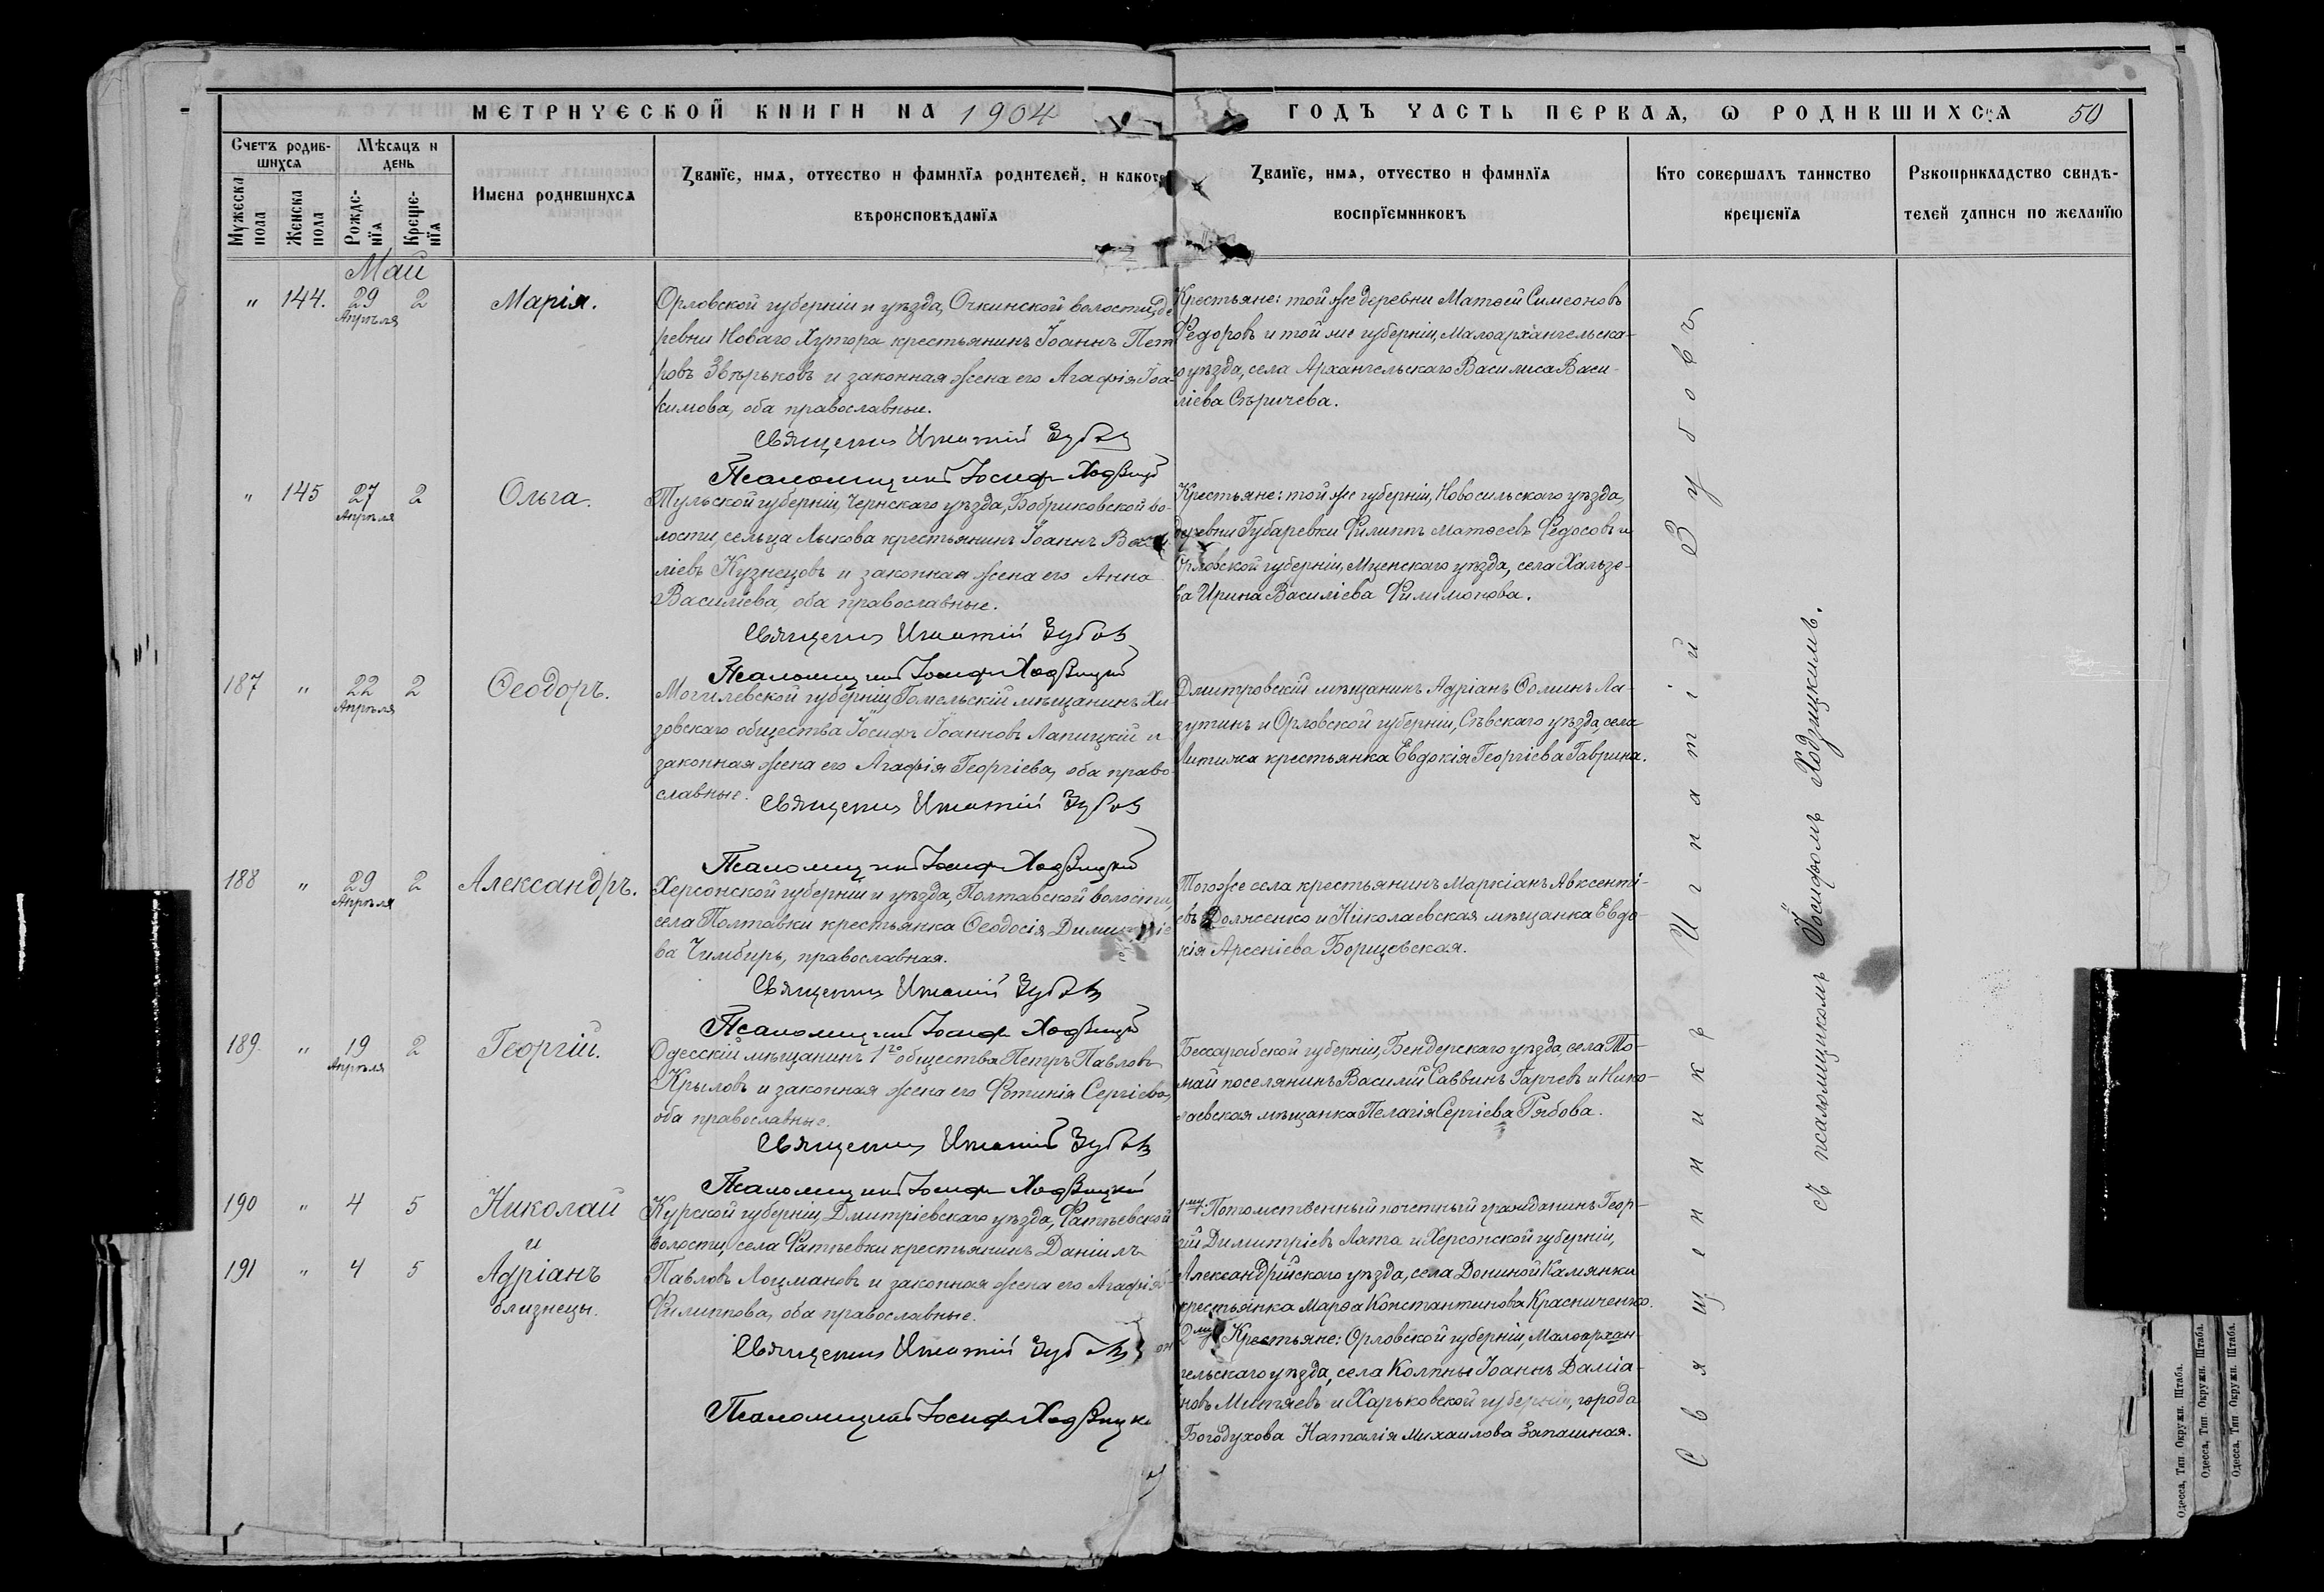 МЕТРИЧЕСКОЙ КНИГИ НА 1904
ГОДЪ ЧАСТЬ ПЕРВАЯ, Ѡ РОДИВШИХСЯ 50
Счетъ родив-
шихся
Мужеска
пола
Женска
пола
Мѣсяцъ и
день
Рожде-
нїя
Креще-
нїя
Имена родившихся
Званїе, имя, отчество и фамилїя родителей, и какого
вѣроисповѣданїя
Званїе, имя, отчество и фамилїя
воспрїемниковъ
Кто совершалъ таинство
крещенїя
Рукоприкладство свидѣ-
телей записи по желанїю
Май
" 144. 29 2
Апрѣля
Марія.
Орловской губерніи и уѣзда, Очкинской волости, де
ревни Новаго Хутора крестьянинъ Іоаннъ Пет
ровъ Звѣрьковъ и законная жена его Агафія Іоа-
кимова, оба православные.
Священник Игнатій Зубов
Псаломщикъ Іосиф Ходзицкій
Крестьяне: той же деревни Матѳей Симеоновъ
Ѳедоровъ и той же губерніи, Малоархангельска-
го уѣзда, села Архангельскаго Василиса Васи-
ліева Сѣричева.
" 145 27 2
Апрѣля
Ольга.
Тульской губерніи, Чернскаго уѣзда, Бобриковской во-
лости, сельца Лыкова крестьянинъ Іоаннъ Васи
ліевъ Кузнецовъ и законная жена его Анна
Василіева, оба православные.
Священник Игнатій Зубов
Псаломщикъ Іосиф Ходзицкій
Крестьяне: той же губерніи, Новосильскаго уѣзда,
деревни Губаревки Филиппъ Матѳеевъ Ѳедосовъ и
Орловской губерніи, Мценскаго уѣзда, села Хальзе-
ва Ирина Василіева Филимонова.
187 " 22 2
Апрѣля
Ѳеодоръ.
Могилевской губерніи, Гомельскій мѣщанинъ Хи-
зовскаго общества Іосифъ Іоанновъ Лапицкій и
законная жена его Агафія Георгіева, оба право
славные.
Священник Игнатій Зубов
Псаломщикъ Іосиф Ходзицкій
Дмитровскій мѣщанинъ Адріанъ Ѳоминъ Ла-
зутинъ и Орловской губерніи, Сѣвскаго уѣзда, села
Литижа крестьянка Евдокія Георгіева Гаврина.
188 " 29 2
Апрѣля
Александръ.
Херсонской губерніи и уѣзда, Полтавской волости,
села Полтавки крестьянка Ѳеодосія Димитріе
ва Чимбирь, православная.
Священник Игнатій Зубов
Псаломщикъ Іосиф Ходзицкій
Того же села крестьянинъ Маркіанъ Авксенті-
евъ Долженко и Николаевская мѣщанка Евдо-
кія Арсеніева Борщевская.
189. " 19 2
Апрѣля
Георгій.
Одесскій мѣщанинъ 1го общества Петръ Павловъ
Крыловъ и законная жена его Фотинія Сергіева,
оба православные.
Священник Игнатій Зубов
Псаломщикъ Іосиф Ходзицкій
Бессарабской губерніи, Бендерскаго уѣзда, села То-
май поселянинъ Василій Саввинъ Гарчевъ и Нико-
лаевская мѣщанка Пелагія Сергіева Рябова.
190 " 4 5
Николай
и
191 " 4 5
Адріанъ
близнецы.
Курской губерніи, Дмитріевскаго уѣзда, Фатѣевской
волости, села Фатѣевки крестьянинъ Даніилъ
Павловъ Лоцмановъ и законная жена его Агафія
Филиппова, оба православные.
Священник Игнатій Зубов
Псаломщикъ Іосиф Ходзицкій
1му: Потомственный почетный гражданинъ Геор-
гій Димитріевъ Лата и Херсонской губерніи,
Александрійскаго уѣзда, села Дониной Камянки
крестьянка Марѳа Константинова Красниченко.
2му Крестьяне: Орловской губерніи, Малоархан-
гельскаго уѣзда, села Колпны Іоаннъ Даміа-
новъ Митяевъ и Харьковской губерніи, города
Богодухова Наталія Михаилова Запашная.
Священникъ Игнатій Зубовъ
съ псаломщикомъ Іосифомъ Ходзицкимъ.
Одесса, Тип. Окружн. Штаба.
Одесса, Тип. Окружн. Штаба.
Одесса, Тип. Окружн. Штаба.